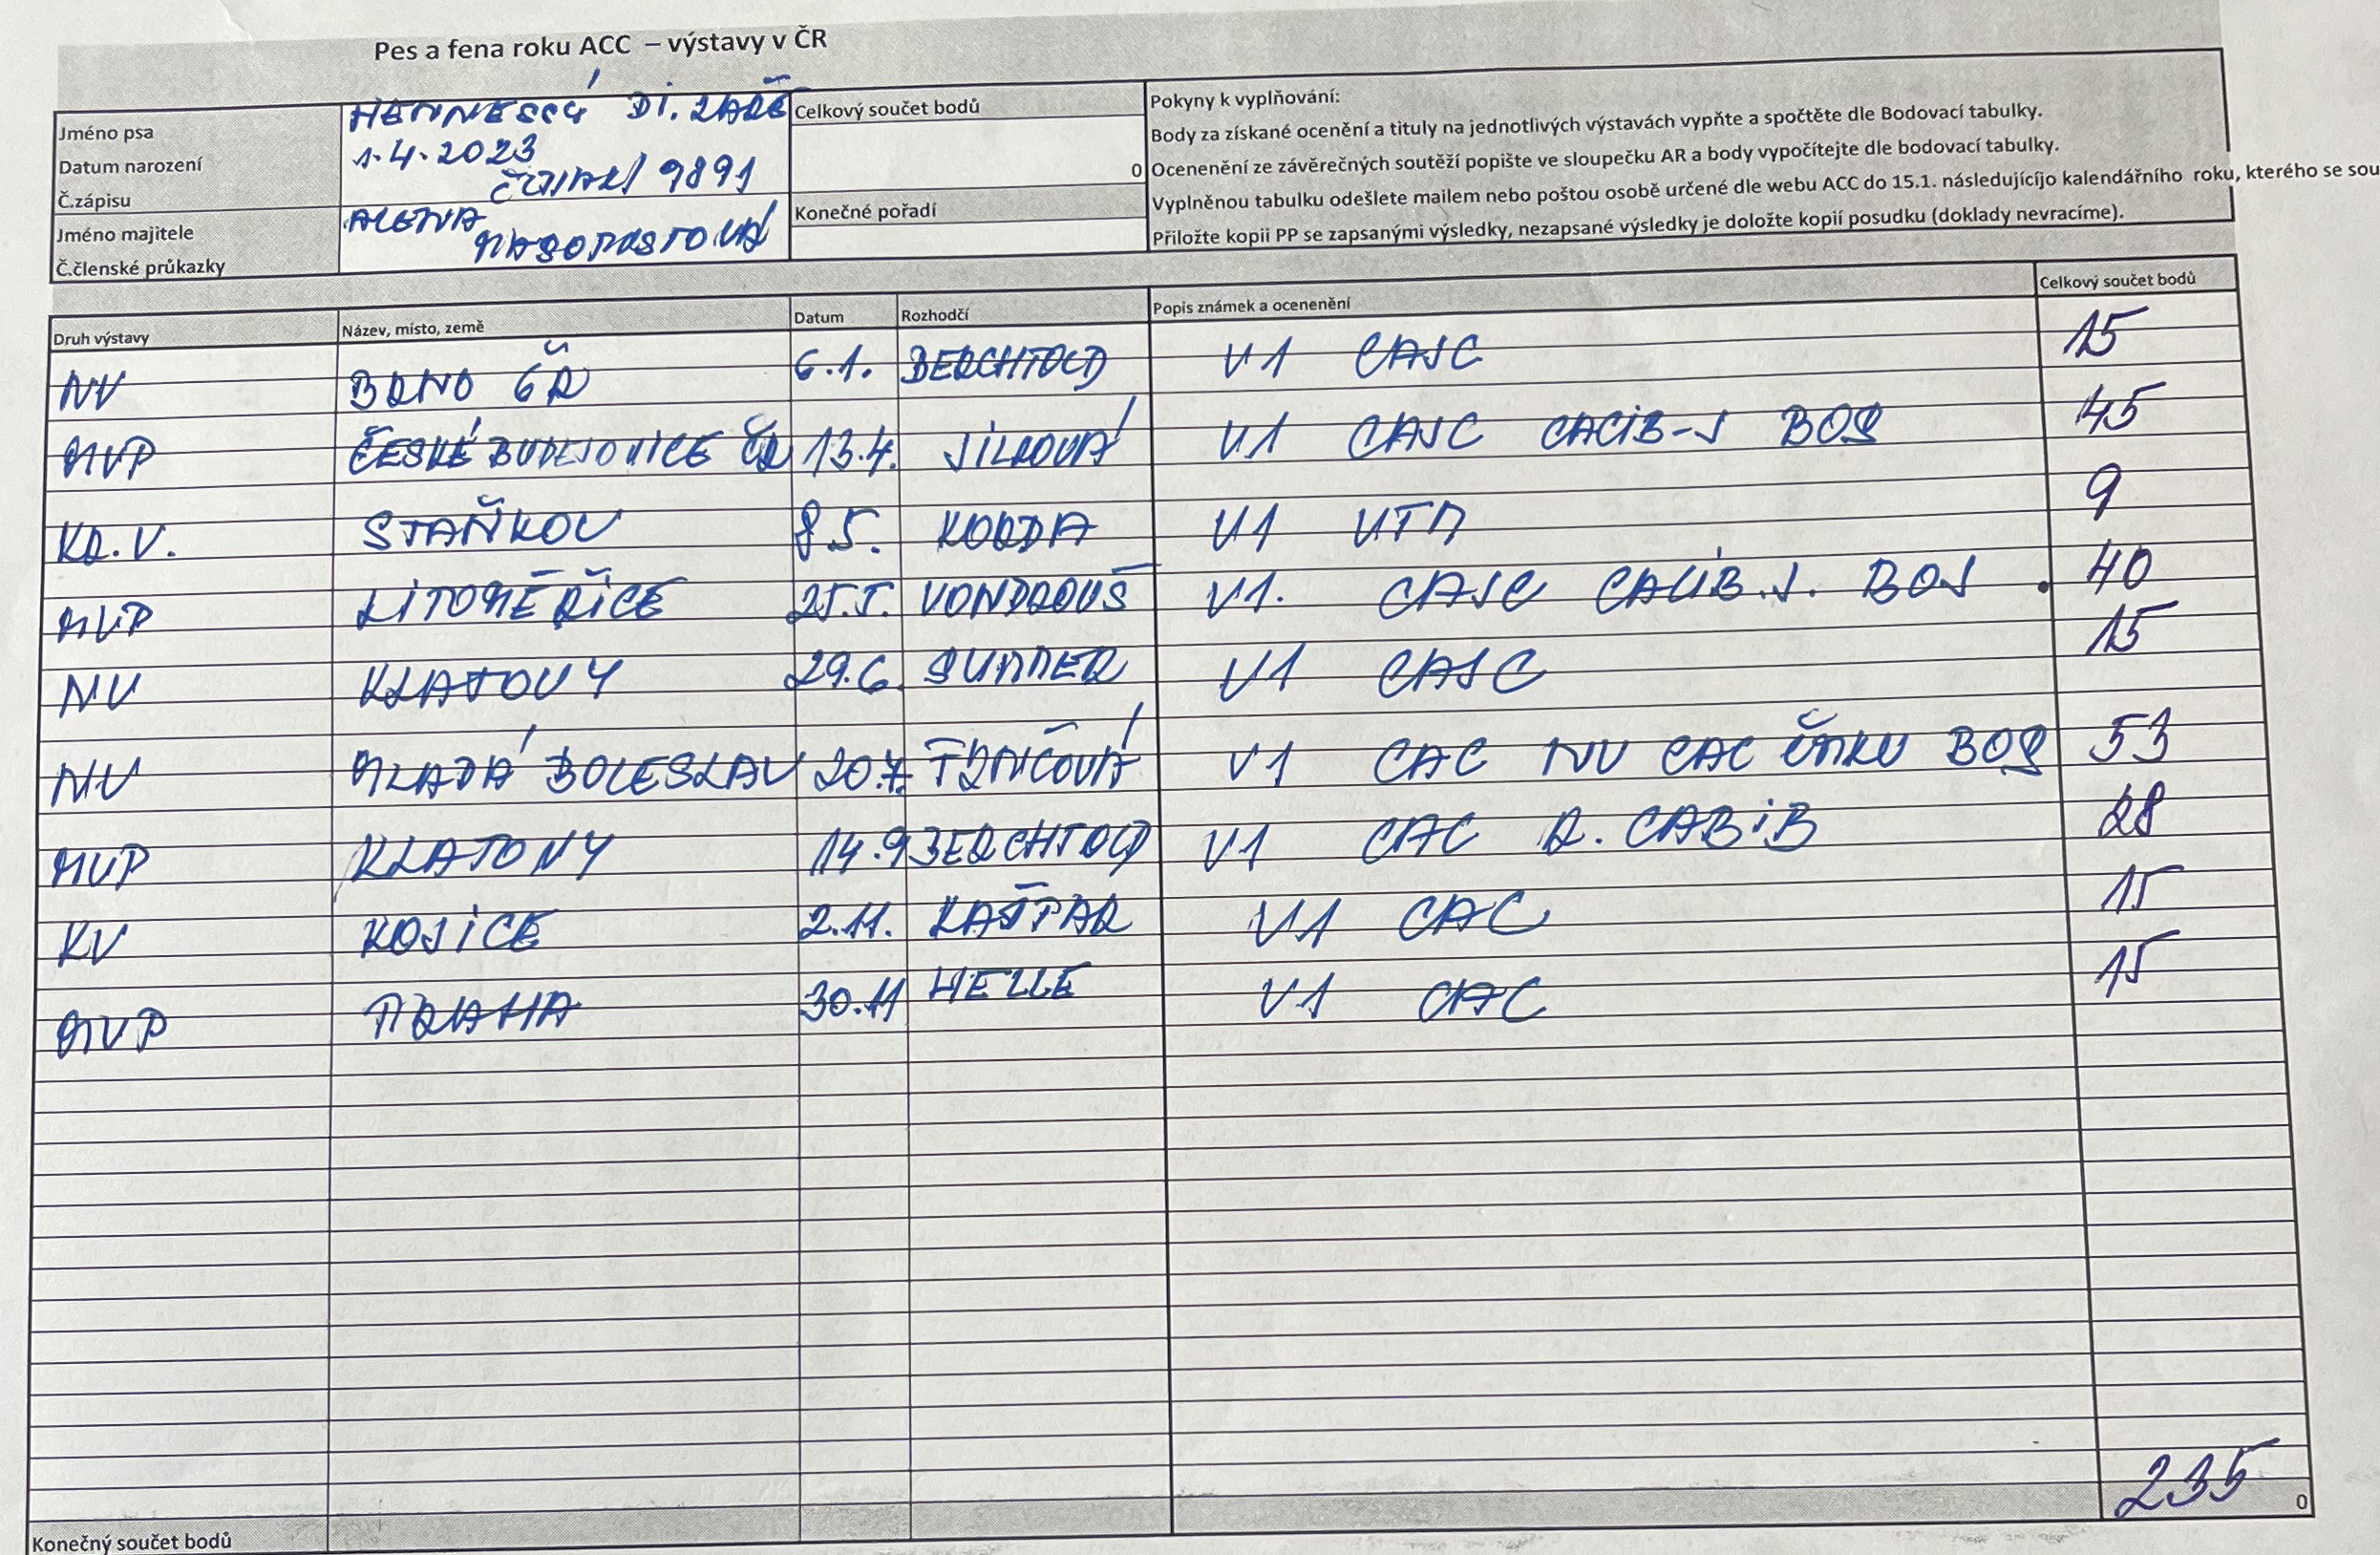 Pes a fena roku ACC – výstavy v ČR
Jméno psa HENNESSY DI. ZAŘE
Datum narození 1.4.2023
Č.zápisu 9891
Jméno majitele ALENA
Č.členské průkazky MASOPUSTOVÁ
Celkový součet bodů
0
Konečné pořadí
Pokyny k vyplňování:
Body za získané ocenění a tituly na jednotlivých výstavách vypňte a spočtěte dle Bodovací tabulky.
Ocenenění ze závěrečných soutěží popište ve sloupečku AR a body vypočítejte dle bodovací tabulky.
Vyplněnou tabulku odešlete mailem nebo poštou osobě určené dle webu ACC do 15.1. následujícíjo kalendářního roku, kterého se sou
Přiložte kopii PP se zapsanými výsledky, nezapsané výsledky je doložte kopií posudku (doklady nevracíme).
Druh výstavy Název, místo, země Datum Rozhodčí Popis známek a ocenenění Celkový součet bodů
NV BRNO ČR 6.1. BERCHTOLD V1 CAJC 15
MVP ČESKÉ BUDEJOVICE ČR 13.4. JÍLKOVÁ V1 CAJC CACIB-J BOS 45
KR.V. STAŇKOV 8.5. KORDA V1 VTM 9
MVP LITOMĚŘICE 25.5. VONDROUŠ V1. CAJC CACIB.J. BOJ . 40
NV KLATOVY 29.6. SUMMER V1 CAJC 15
NV MLADÁ BOLESLAV 20.7. V1 CAC NV CAC ČMKU BOS 53
MVP KLATOVY 14.9 BERCHTOLD V1 CAC R. CACIB 28
KV KOJICE 2.11. KAŠPAR V1 CAC 15
MVP PRAHA 30.11 HELLE V1 CAC 15
Konečný součet bodů 235 0